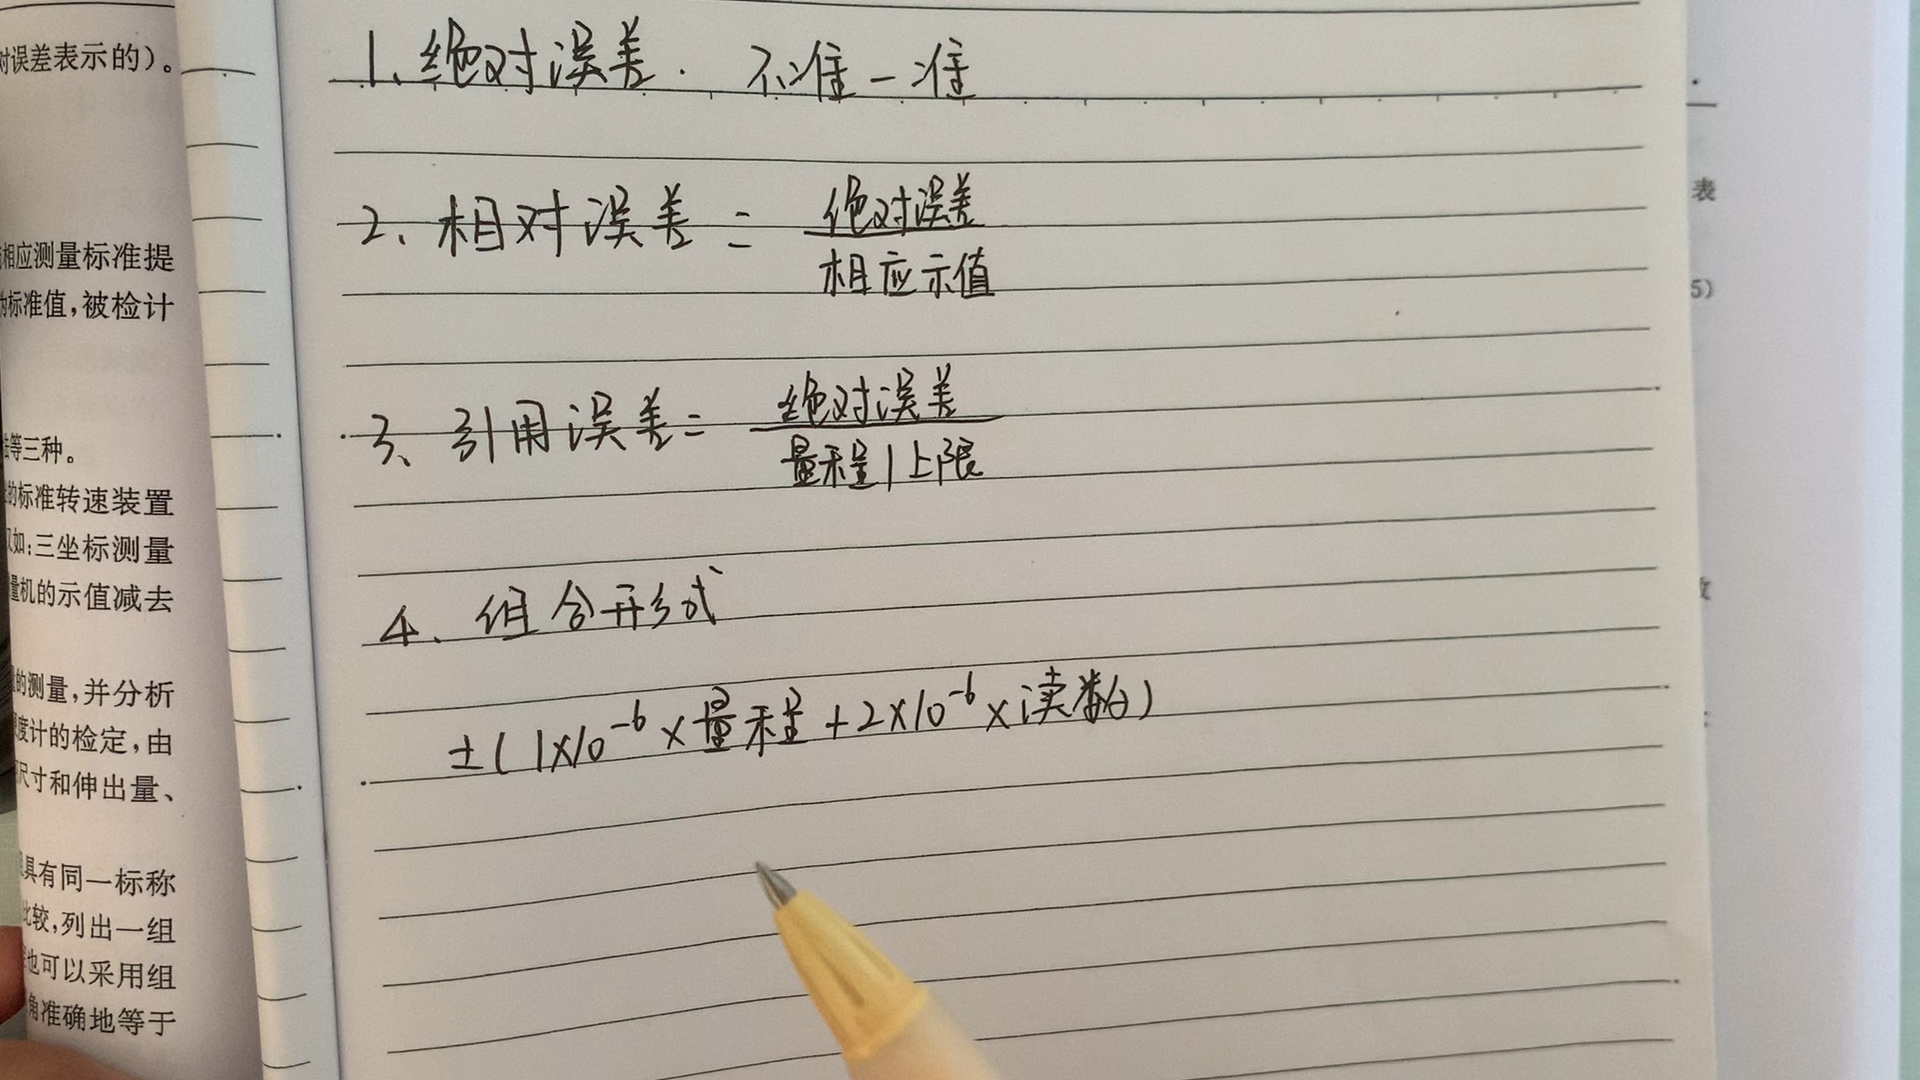 对误差表示的)。
相应测量标准提
标准值,被检计
等三种。
的标准转速装置
又如:三坐标测量
量机的示值减去
的测量,并分析
度计的检定,由
尺寸和伸出量、
具有同一标称
比较,列出一组
也可以采用组
角准确地等于
1、绝对误差. 不准-准
2、相对误差 = 绝对误差
相应示值
3、引用误差= 绝对误差
量程/上限
4、组合形式
±(1×10⁻⁶×量程+2×10⁻⁶×读数)
表
5)